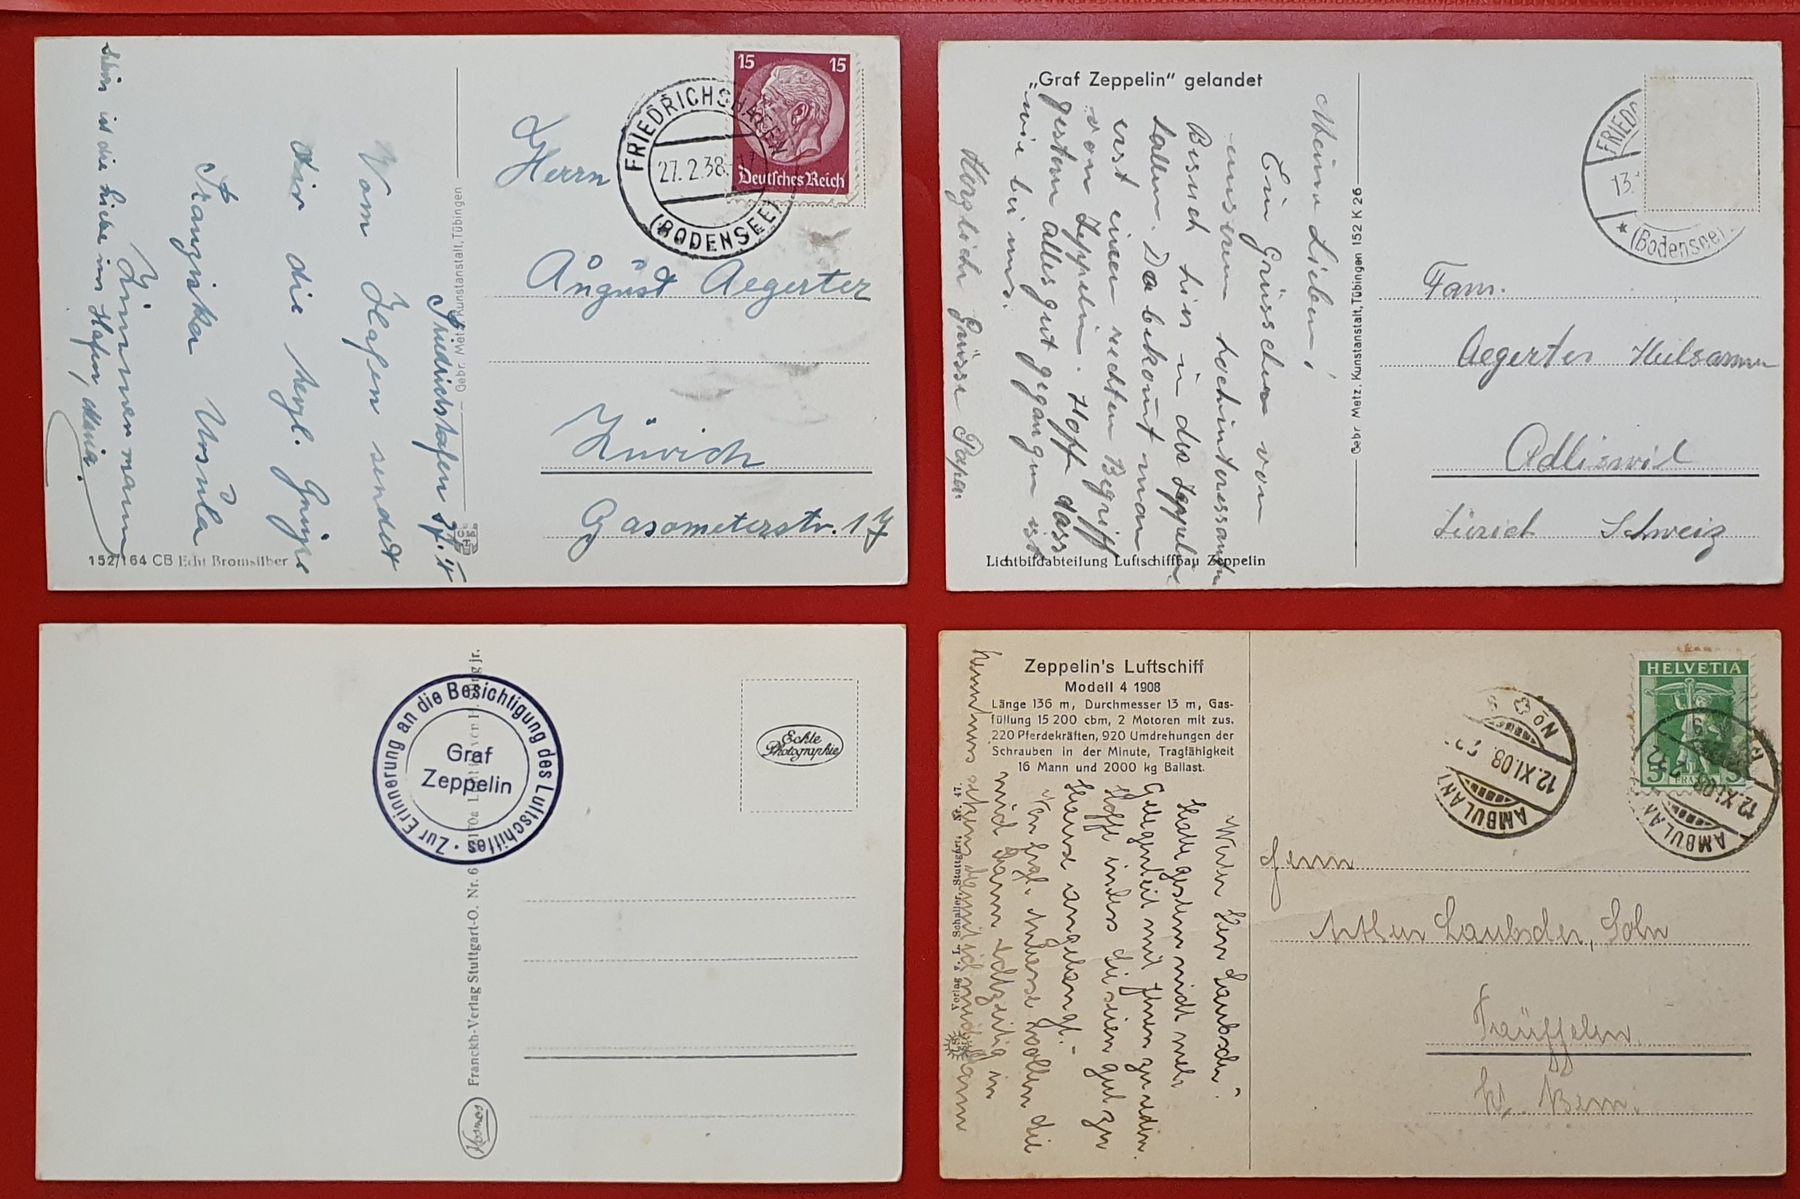 15 15
Deutsches Reich
FRIEDRICHSHAFEN
27.2.38
(BODENSEE)
Herrn
August Aegerter
Zürich
Gasometerstr. 17
Friedrichshafen
Vom Hafen sendet
dir die herzl. Grüsse
Franziska Ursula
Zimmermann
ist die Liebe im Hafen, Maria.
Gebr. Metz, Kunstanstalt, Tübingen
152/164 CB Echt Bromsilber
„Graf Zeppelin“ gelandet
Meine Lieben!
Ein Grüsschen von
unserem hochinteressanten
Besuch hier in der Zeppelin
hallen. Da bekomt man
erst einen rechten Begriff
vom Zeppelin. Hoff dass
gestern alles gut gegangen ist
wie bei uns.
Herzlich Grüsse Papa
Gebr. Metz, Kunstanstalt, Tübingen 152 K 26
Lichtbildabteilung Luftschiffbau Zeppelin
FRIED
13.
(Bodensee)
Fam.
Aegerter Heilsarmee
Adliswil
Zürich Schweiz
Zur Erinnerung an die Besichtigung des Luftschiffes
Graf
Zeppelin
Franckh-Verlag Stuttgart-O. Nr. 6
Kosmos
Echte
Photographie
Zeppelin's Luftschiff
Modell 4 1908
Länge 136 m, Durchmesser 13 m, Gas-
füllung 15 200 cbm, 2 Motoren mit zus.
220 Pferdekräften, 920 Umdrehungen der
Schrauben in der Minute, Tragfähigkeit
16 Mann und 2000 kg Ballast.
Verlag v. L. Schaller, Stuttgart. Nr. 47.
Werter Herr Laubscher!
Hatte gestern nicht mehr
Gelegenheit mit Ihnen zu reden.
Hoffe indess Sie seien gut zu
Hause angelangt.
HELVETIA
5 FRANCO 5
AMBULANT
12.XI.08
AMBULANT
12.XI.08
Herrn
Arthur Laubscher, Sohn
Täuffelen
Kt. Bern.